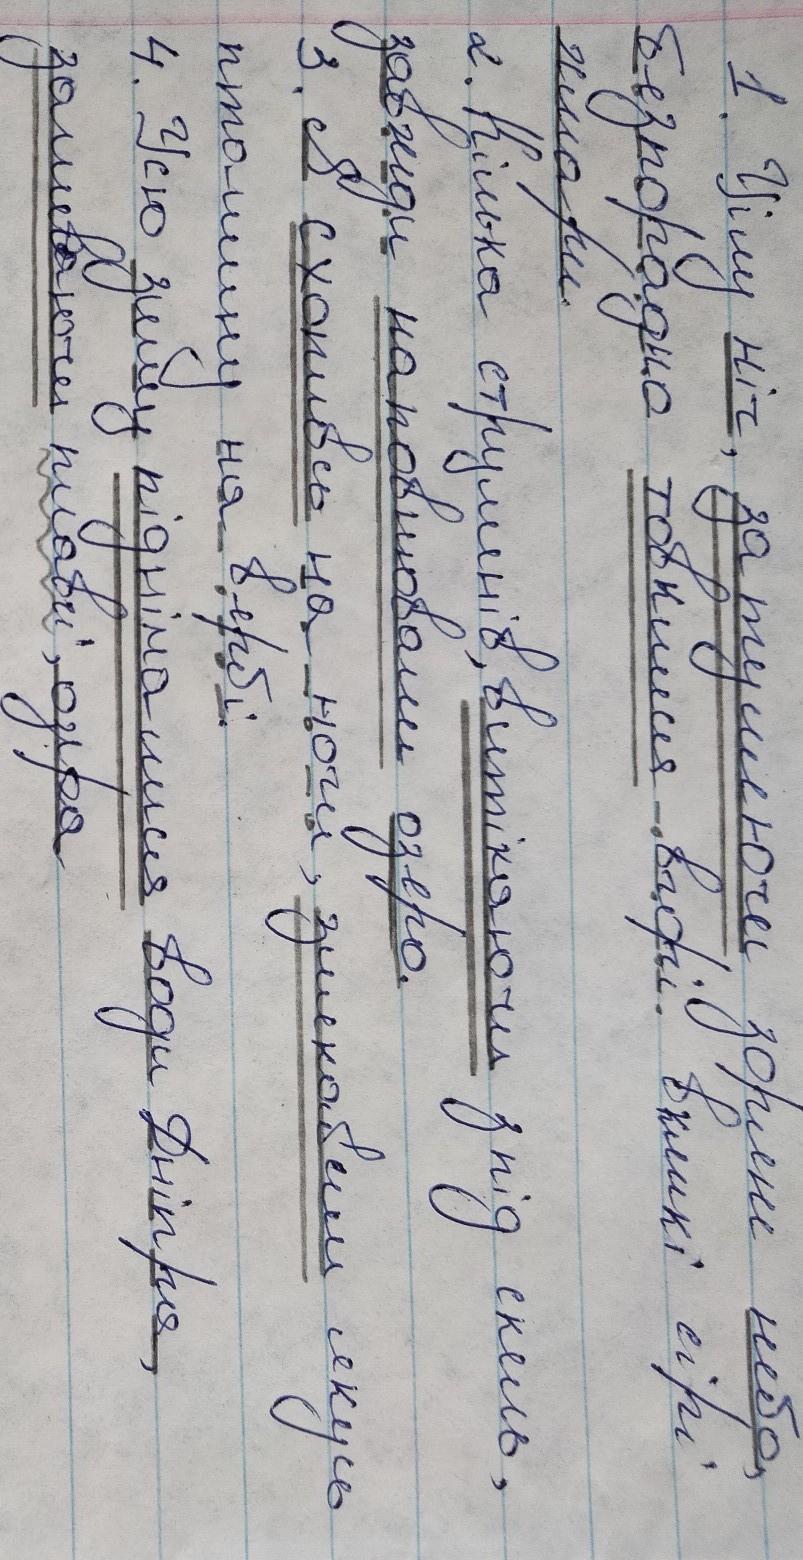 1. Цілу ніч, затуляючи зоряне небо,
безпорадно товклися вгорі великі сірі
хмари.
2. Кілька струменів, витікаючи з під скель,
завжди наповнювали озеро.
3. Я схопивсь на ноги, злякавши якусь
пташину на вербі.
4. Усю зиму піднімалися води Дніпра,
заливаючи плавні, озера